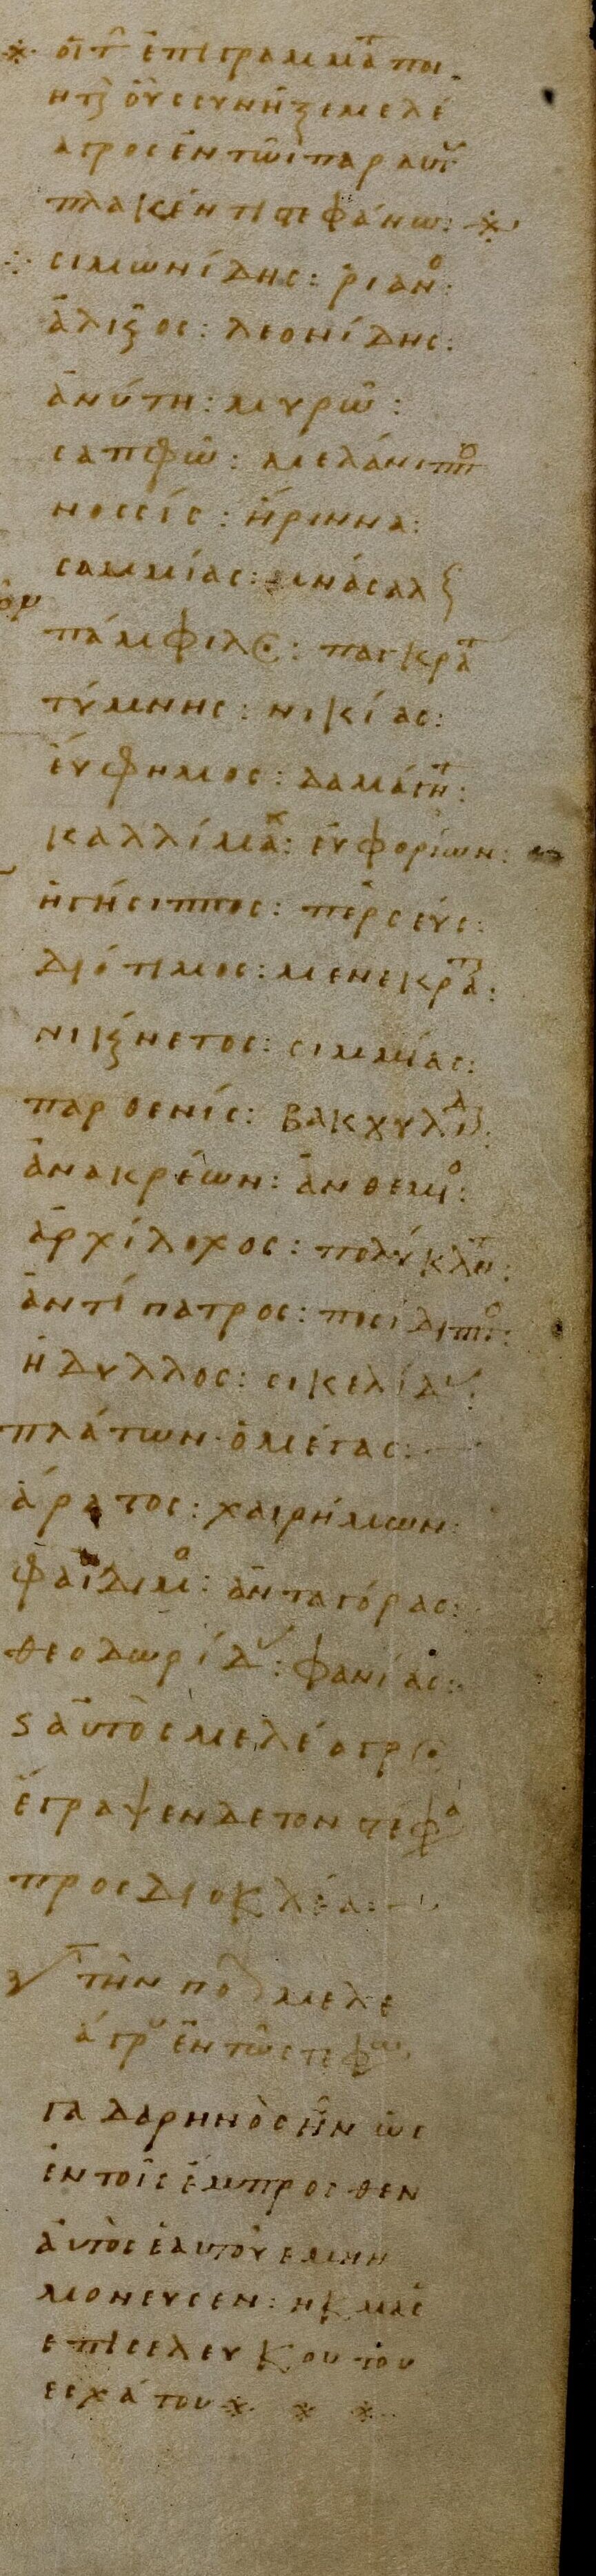 οἱ τ̑ ἐπιγραμμάτ ποι
ητ οὓς συνῆξε μελέ
αγρος ἐν τῶι παρ αυτ
πλακέντι στεφάνω:
σιμωνίδης: ῥιαν:
ἀλκαῖος: λεονίδης:
ἀνύτη: μυρώ:
σαπφώ: μελάνιππ
νοσσίς: ἤριννα:
σαμμίας: μνάσαλκ
πάμφιλος: παγκρατ
τύμνης: νικίας:
εὔφημος: δαμάγητ:
καλλίμαχ: εὐφορίων:
ἡγήσιππος: περσεύς:
διότιμος: μενεκρατ:
νικαίνετος: σιμμίας:
παρθενίς: βακχυλίδ:
ἀνακρέων: ἀνθέμι:
ἀρχίλοχος: πολύκλειτ:
ἀντίπατρος: ποσίδιππο:
ἡδυλλος: σικελίδου:
πλάτων ὁ μέγας:
ἄρατος: χαιρήμων:
φαίδιμο: ἀνταγόρας:
θεοδωρίδου: φανίας:
καὶ αὐτὸς μελέαγρος
ἔγραψεν δὲ τὸν στέφα
προς διοκλέα:
τὴν μελε
άγρου ἐν τῶ στεφάνω
γαδαρηνὸς ἦν ὡς
ἐν τοῖς ἔμπροσθεν
αὐτὸς ἑαυτοῦ ἐμνη
μόνευσεν: ἤκμασ
ἐπι σελευκου του
ἐσχάτου